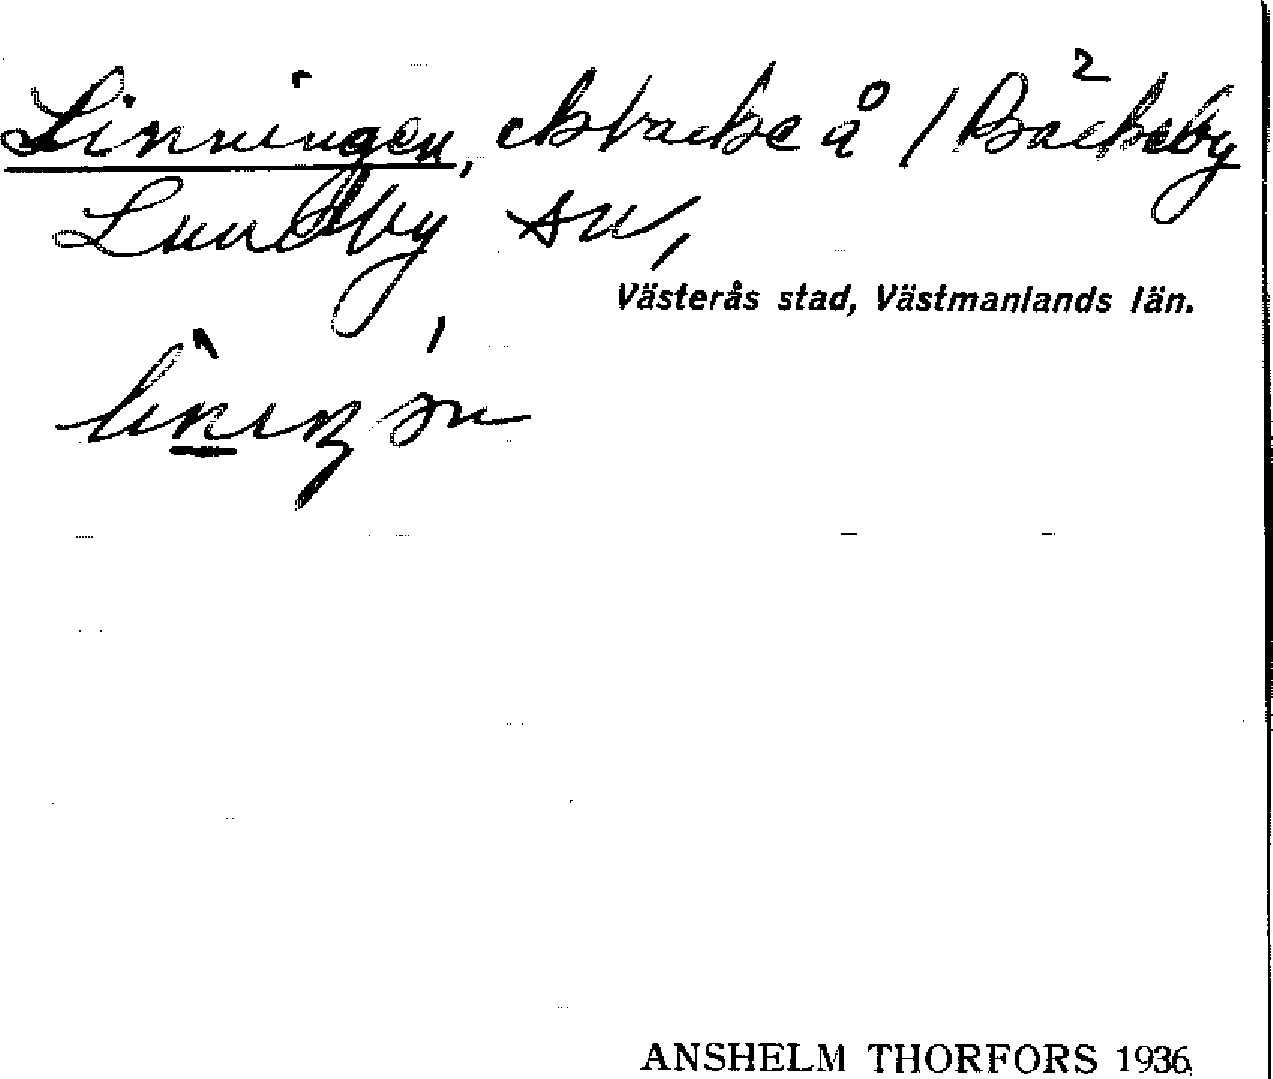 Linningen, ekbacke å / Bäckeby
Lundby sn,
Västerås stad, Västmanlands län.
ANSHELM THORFORS 1936.